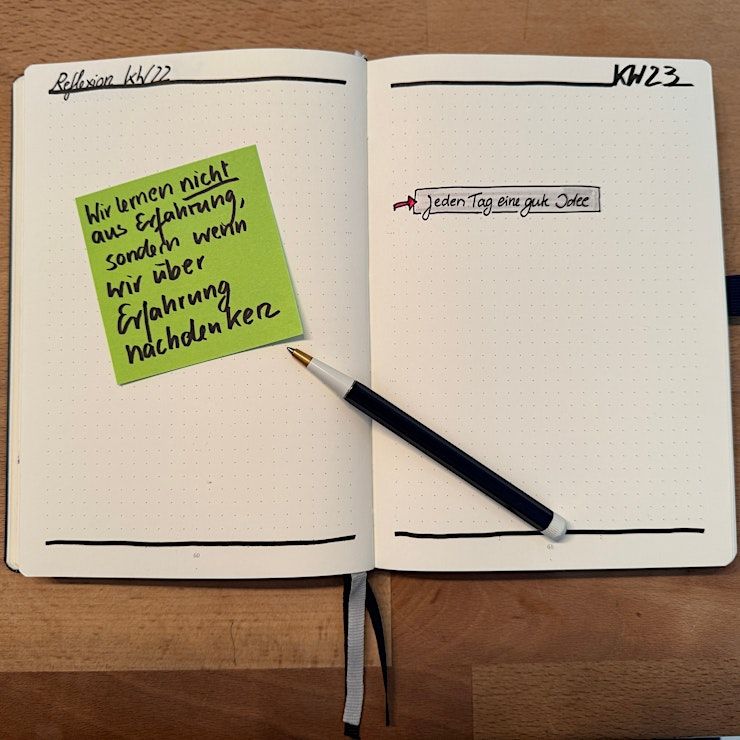 Reflexion KW22
Wir lernen nicht
aus Erfahrung,
sondern wenn
wir über
Erfahrung
nachdenken
60
KW23
Jeden Tag eine gute Idee